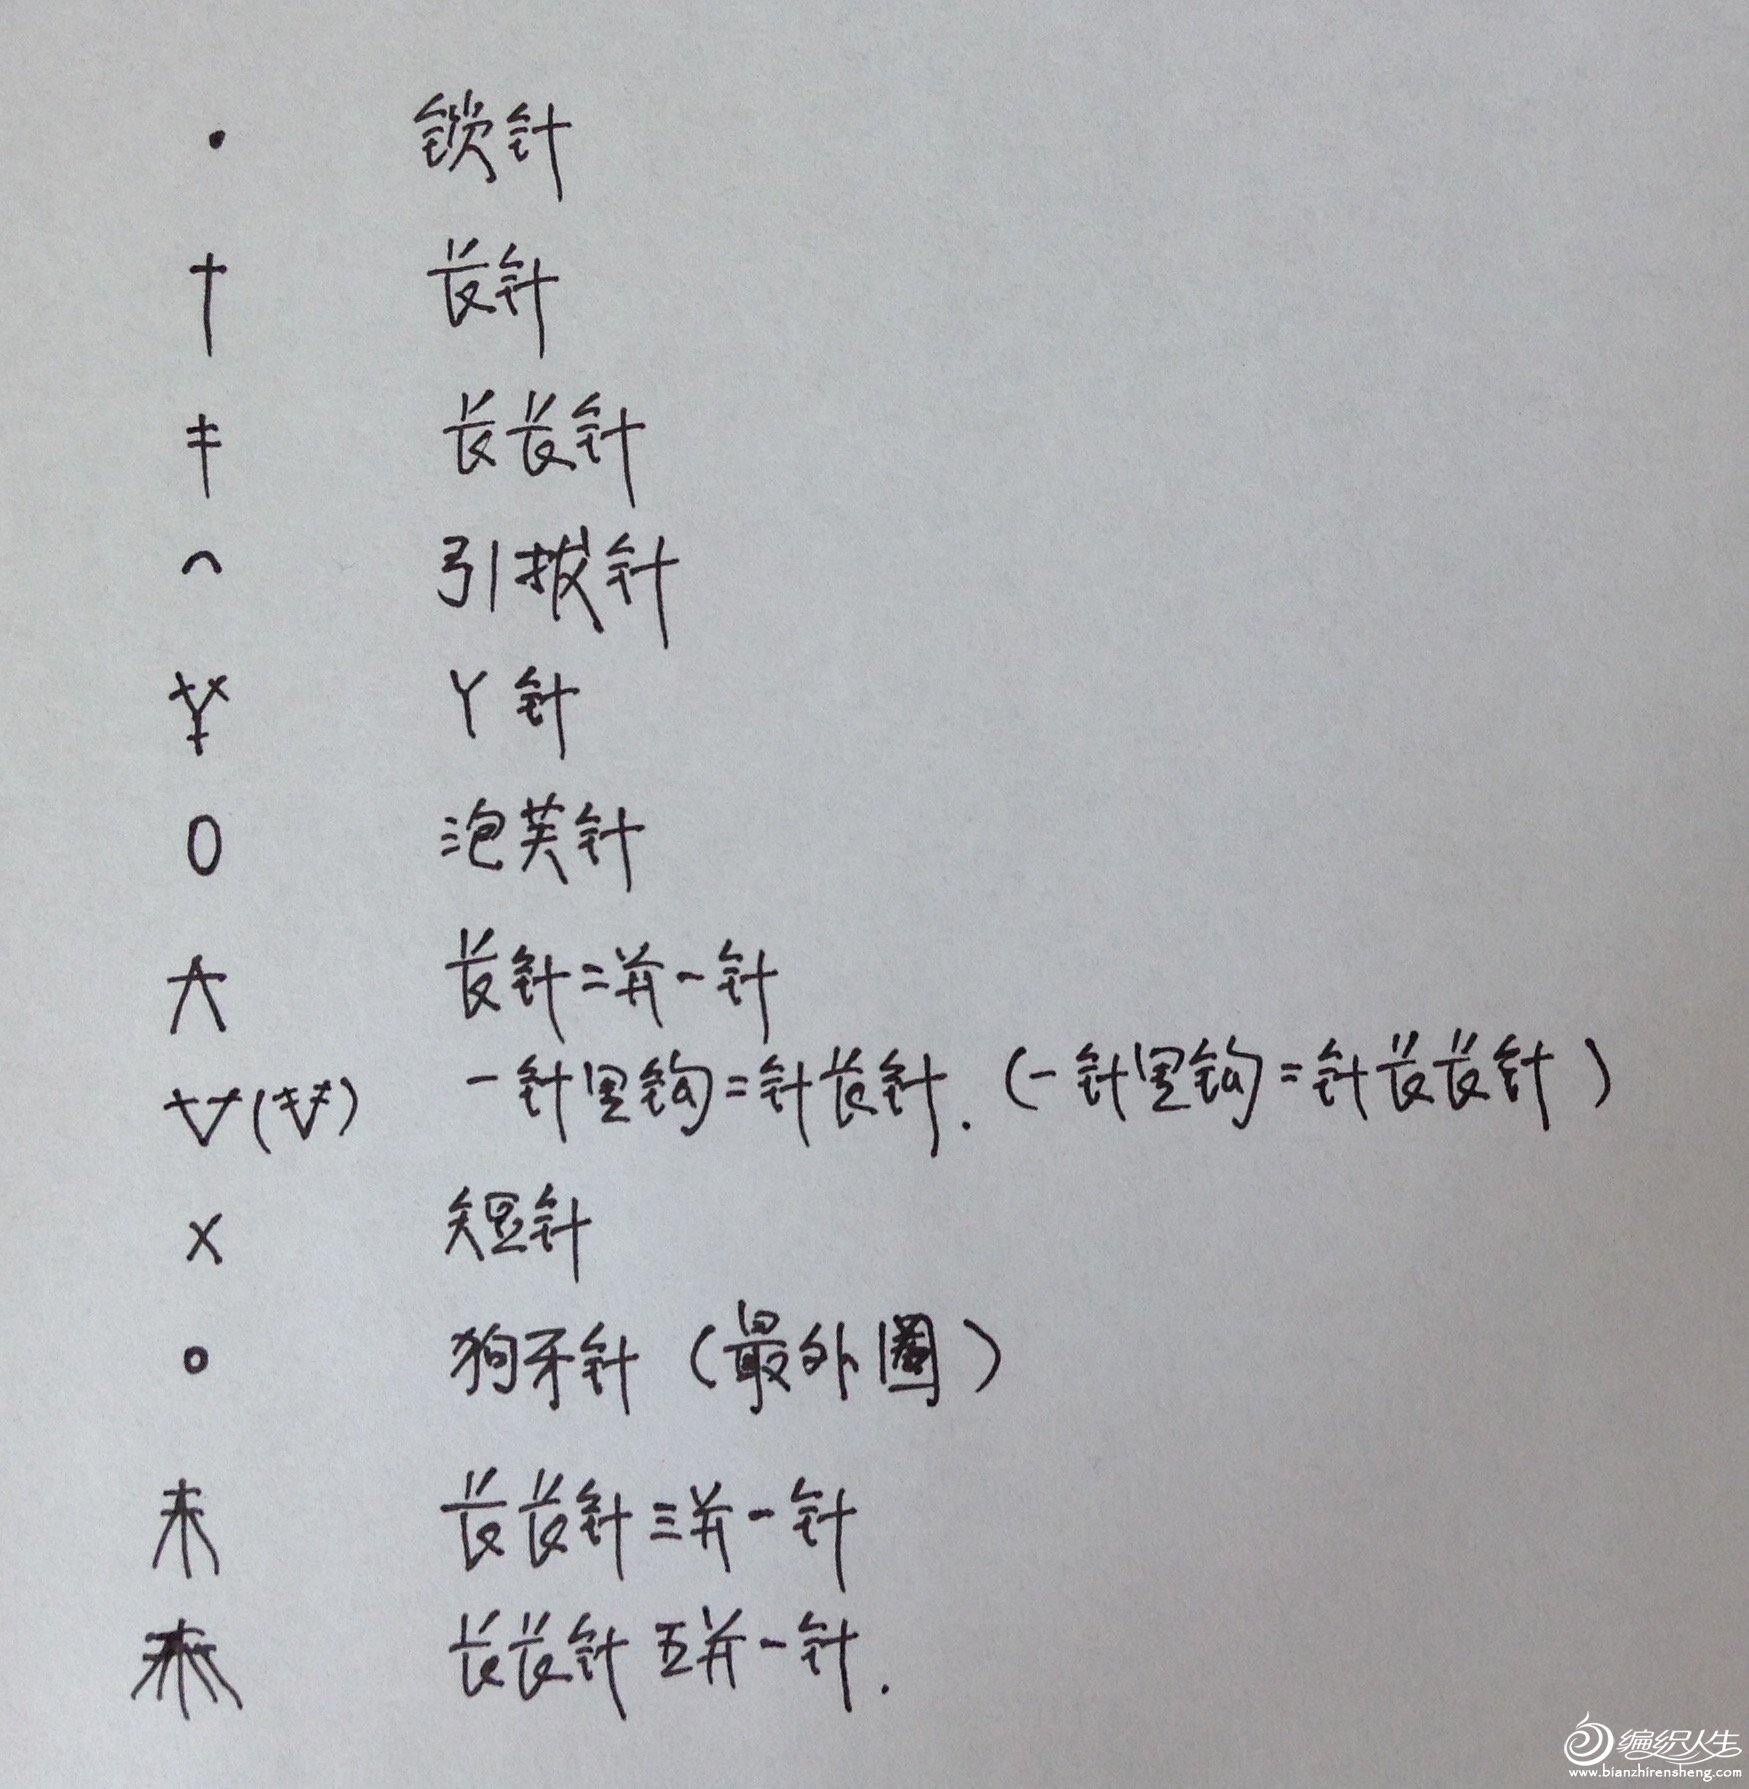 · 锁针
† 长针
‡ 长长针
⌒ 引拔针
Y针
0 泡芙针
长针二并一针
一针里钩二针长针.(一针里钩二针长长针)
x 短针
o 狗牙针(最外圈)
长长针三并一针
长长针五并一针.
编织人生
www.bianzhirensheng.com